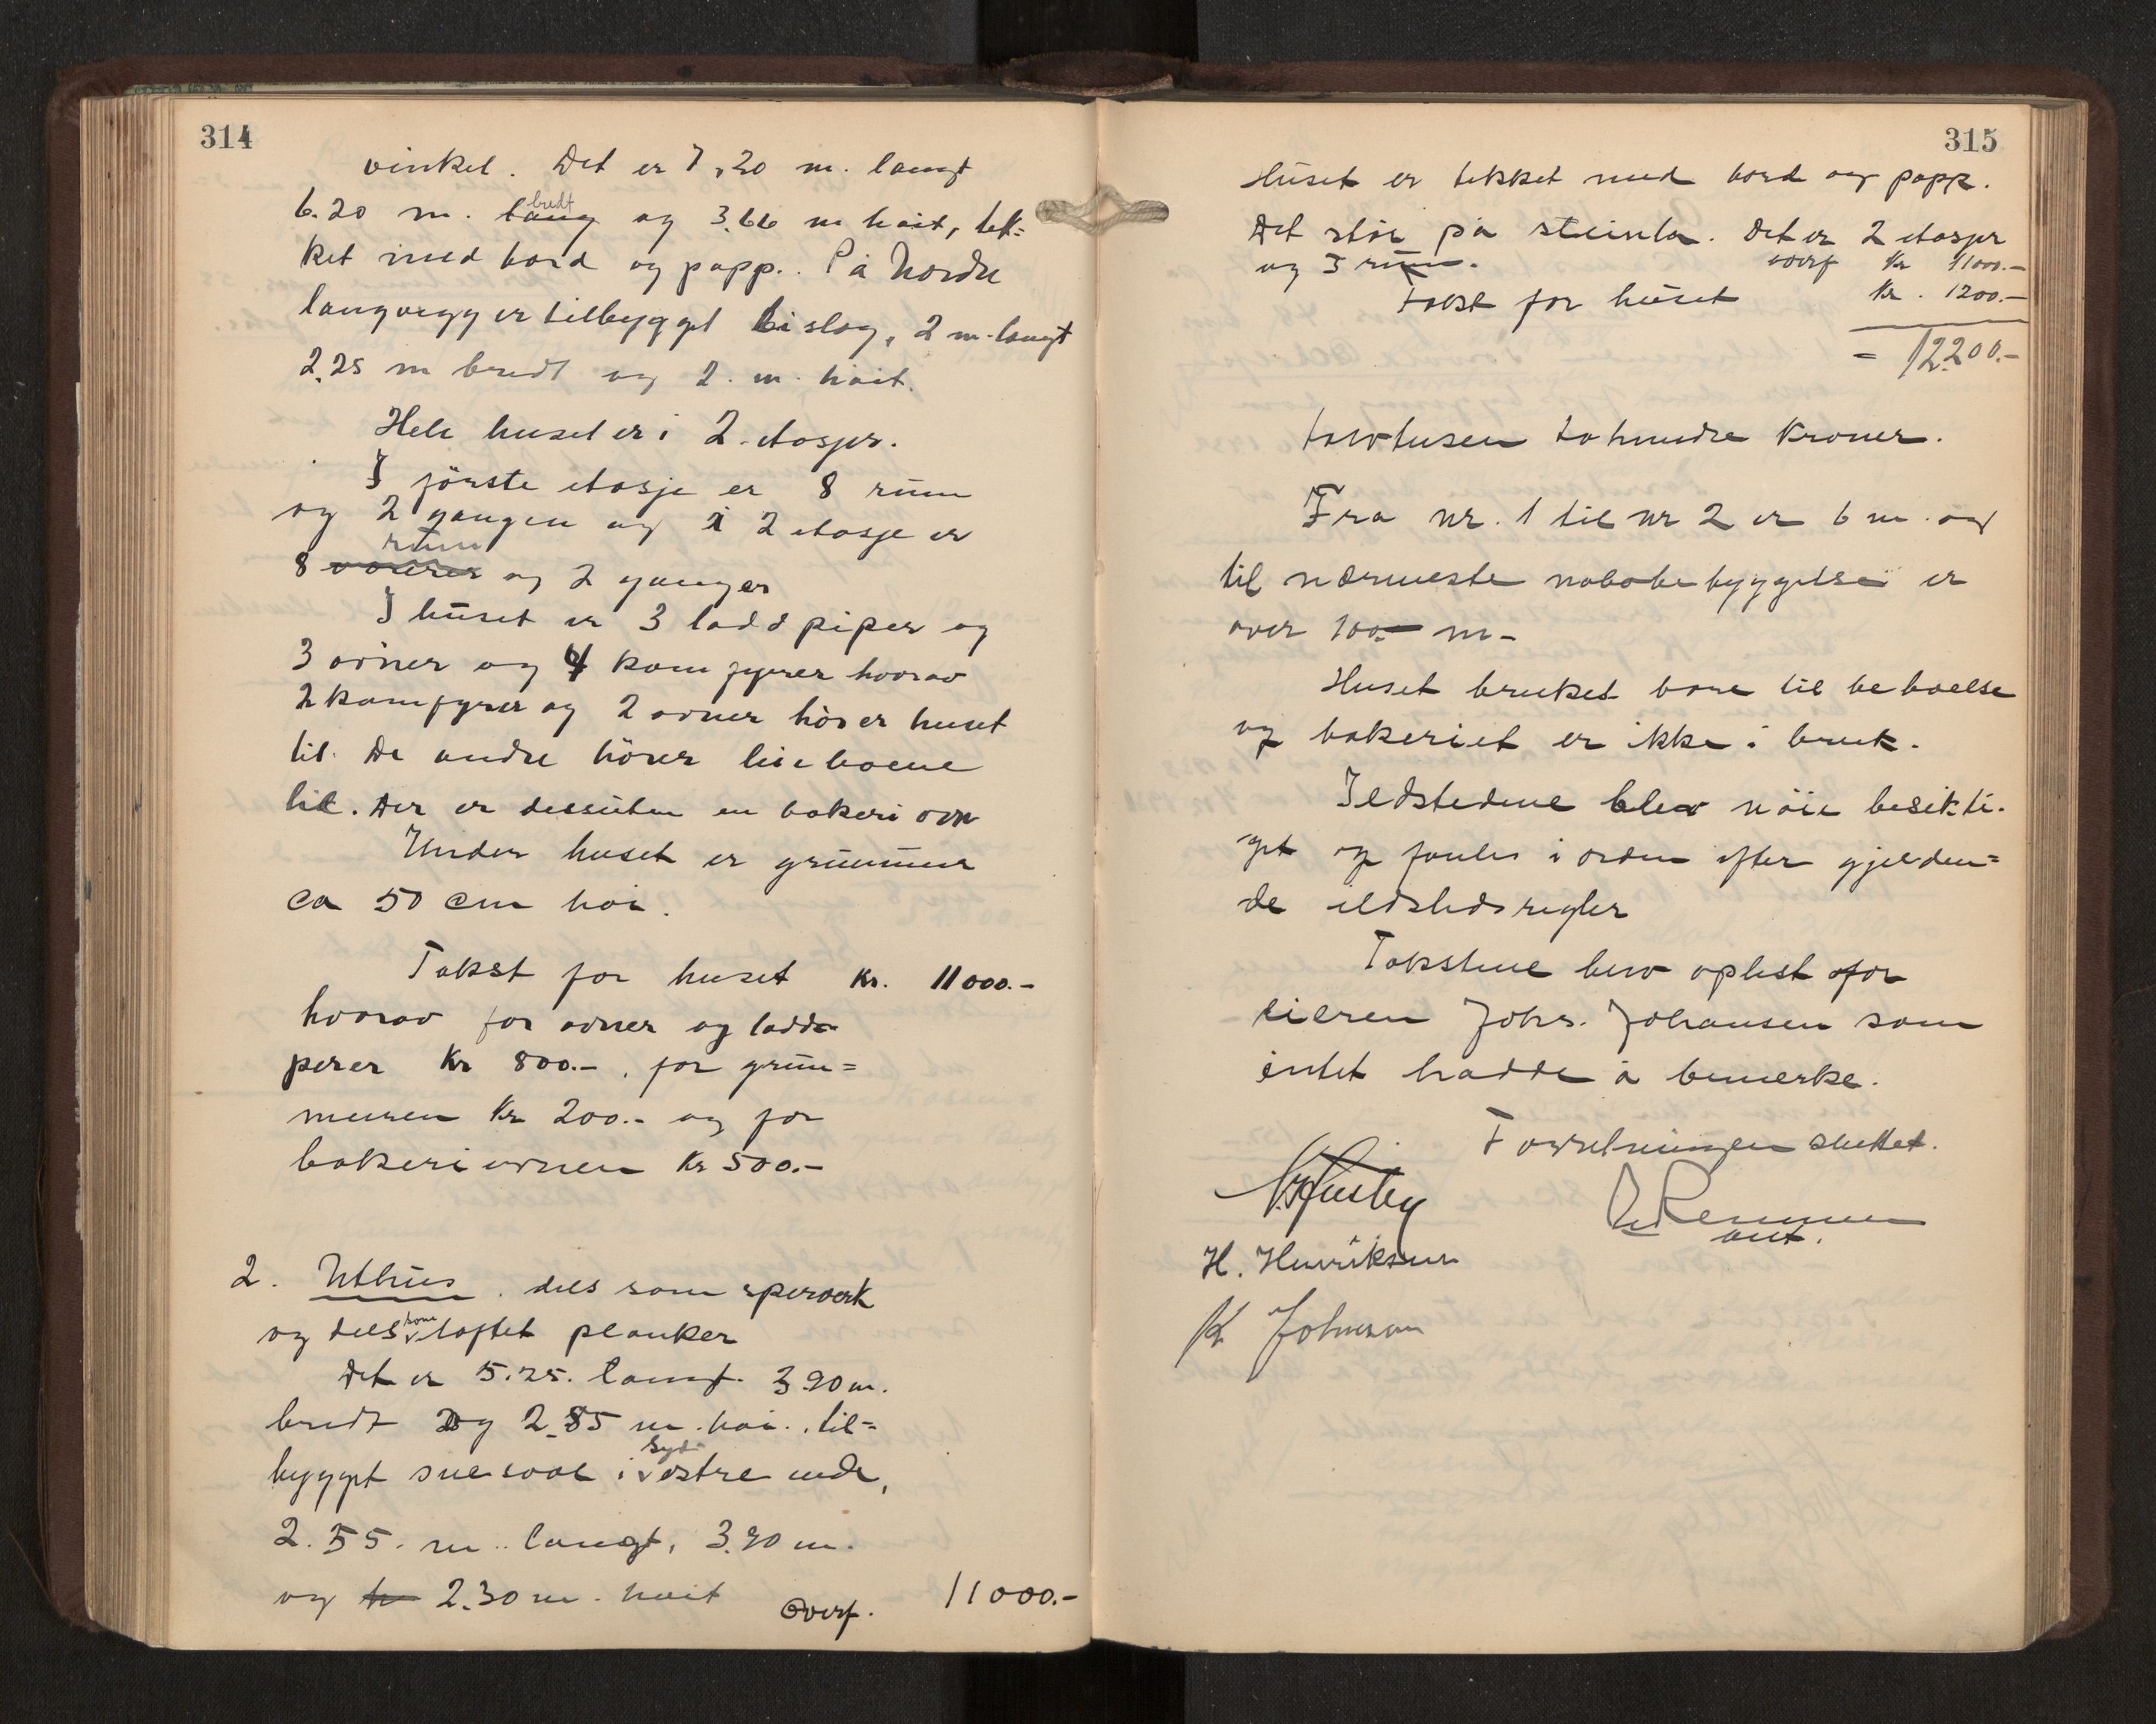 314
vinkel. Det er 7,20 m. langt
bredt
6.20 m. lang og 3.66 m høit, tek=
ket med bord og papp. På Nordre
langvegg er tilbygget bislag, 2 m. langt
2.25 m bredt og 2. m. høit.
Hele huset er i 2. etasjer.
I förste etasje er 8 rum
og 2 ganger og i 2 etasje er
rum
8 og 2 ganger
I huset er 3 ladd piper og
3 ovner og 4 komfyrer hvorav
2 komfyrer og 2 ovner hörer huset
til. De andre hörer leieboene
til. Der er dessuten en bakeriovn
Under huset er grunnmur
ca 50 cm høi.
Takst for huset kr. 11000.-
hvorav for ovner og ladde
perer Kr 800.-, for grun=
muren Kr 200.- og for
bakeriovnen Kr 500.-
2. Uthus. dels som sperverk
som
og dels laftet planker
Det er 5.25. langt. 3.90 m.
bredt og 2.85 m. høi., til=
syd
bygget sneskot i vestre ende,
2.55. m.. langt, 3.90 m.
og 2.30 m. høit Overf. 11000.-
315
Huset er tekket med bord og papp.
Det står på steinla. Det er 2 etasjer
og 3 rum. overf Kr 11000.-
Takst for huset Kr. 1200.-
= 12200.-
tolvtusen tohundre Kroner.
Fra nr. 1 til nr 2 er 6 m. og
til nærmeste nabobebyggelse er
over 100.- m-
Huset bruket bare til beboelse
og bakeriet er ikke i bruk.
Ildstedene blev nöie besikti-
get og fantes i orden efter gjelden=
de ildstedsregler
Takstene blev oplest for
eieren Johs. Johansen som
intet hadde å bemerke.
Forretningen sluttet.
H. Henriksen
K Johnsen